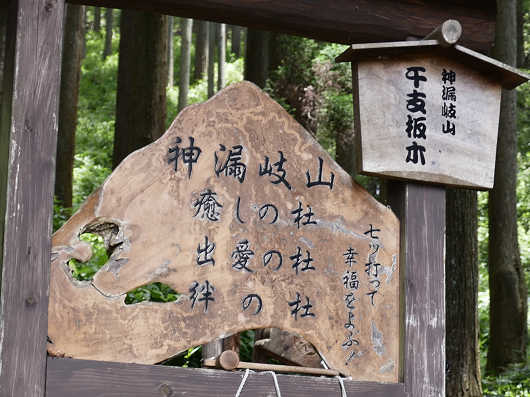 神漏岐山
癒しの杜
出愛の杜
絆の杜
七ツ打って
幸福をよぶ！
神漏岐山
干支板木